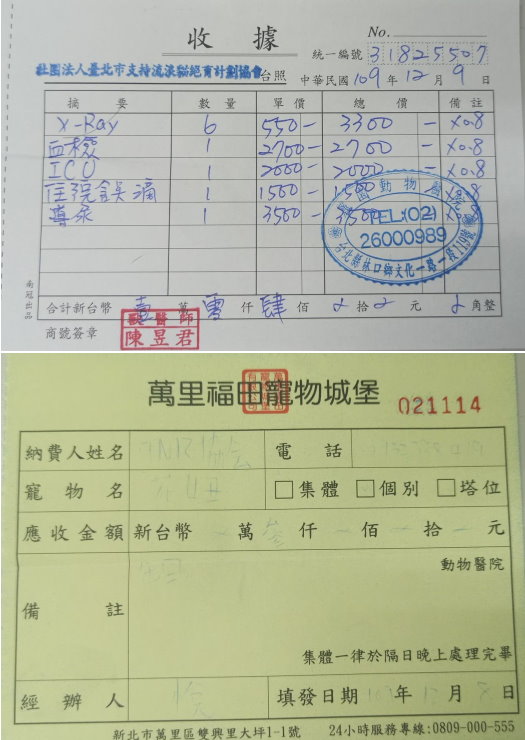 收據
No.
統一編號 31825507
社團法人臺北市支持流浪貓絕育計劃協會 台照 中華民國 109 年 12 月 9 日
摘要 數量 單價 總價 備註
X-Ray 6 550- 3300 - x0.8
血檢 1 2700- 2700 - x0.8
ICU 1 2000- 2000 - x0.8
住院 1 1500 1500 x0.8
導尿 1 3500 - x0.8
動物醫院
TEL:(02)
26000989
台北縣林口鄉文化一路一段119號
合計新台幣 壹 萬 零 仟 肆 佰 拾 元 角整
南冠出品
商號簽章
獸醫師
陳昱君
萬里福田寵物城堡
021114
納費人姓名 TNR協會 電話
寵物名 花妞 集體 個別 塔位
應收金額 新台幣 萬 參 仟 佰 拾 元
備註
動物醫院
集體一律於隔日晚上處理完畢
經辦人 填發日期 109 年 12 月 8 日
新北市萬里區雙興里大坪1-1號 24小時服務專線:0809-000-555